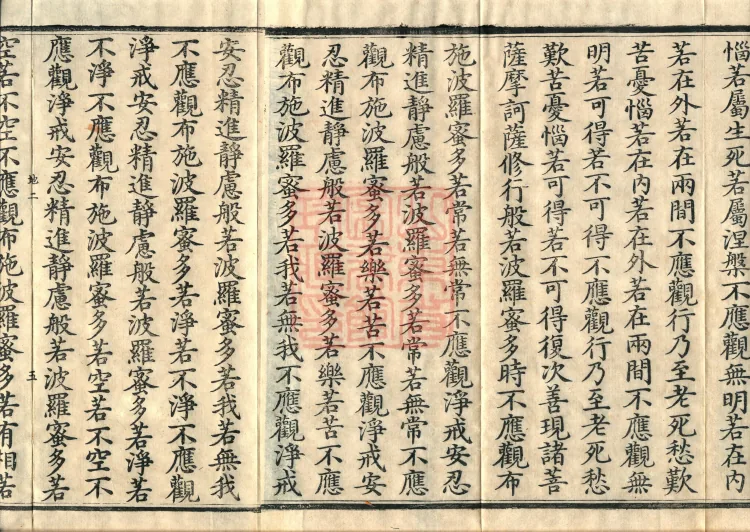 惱若屬生死若屬涅槃不應觀無明若在內
若在外若在兩間不應觀行乃至老死愁歎
苦憂惱若在內若在外若在兩間不應觀無
明若可得若不可得不應觀行乃至老死愁
歎苦憂惱若可得若不可得復次善現諸菩
薩摩訶薩修行般若波羅蜜多時不應觀布
施波羅蜜多若常若無常不應觀淨戒安忍
精進靜慮般若波羅蜜多若常若無常不應
觀布施波羅蜜多若樂若苦不應觀淨戒安
忍精進靜慮般若波羅蜜多若樂若苦不應
觀布施波羅蜜多若我若無我不應觀淨戒
安忍精進靜慮般若波羅蜜多若我若無我
不應觀布施波羅蜜多若淨若不淨不應觀
淨戒安忍精進靜慮般若波羅蜜多若淨若
不淨不應觀布施波羅蜜多若空若不空不
應觀淨戒安忍精進靜慮般若波羅蜜多若
地二 五
空若不空不應觀布施波羅蜜多若有相若